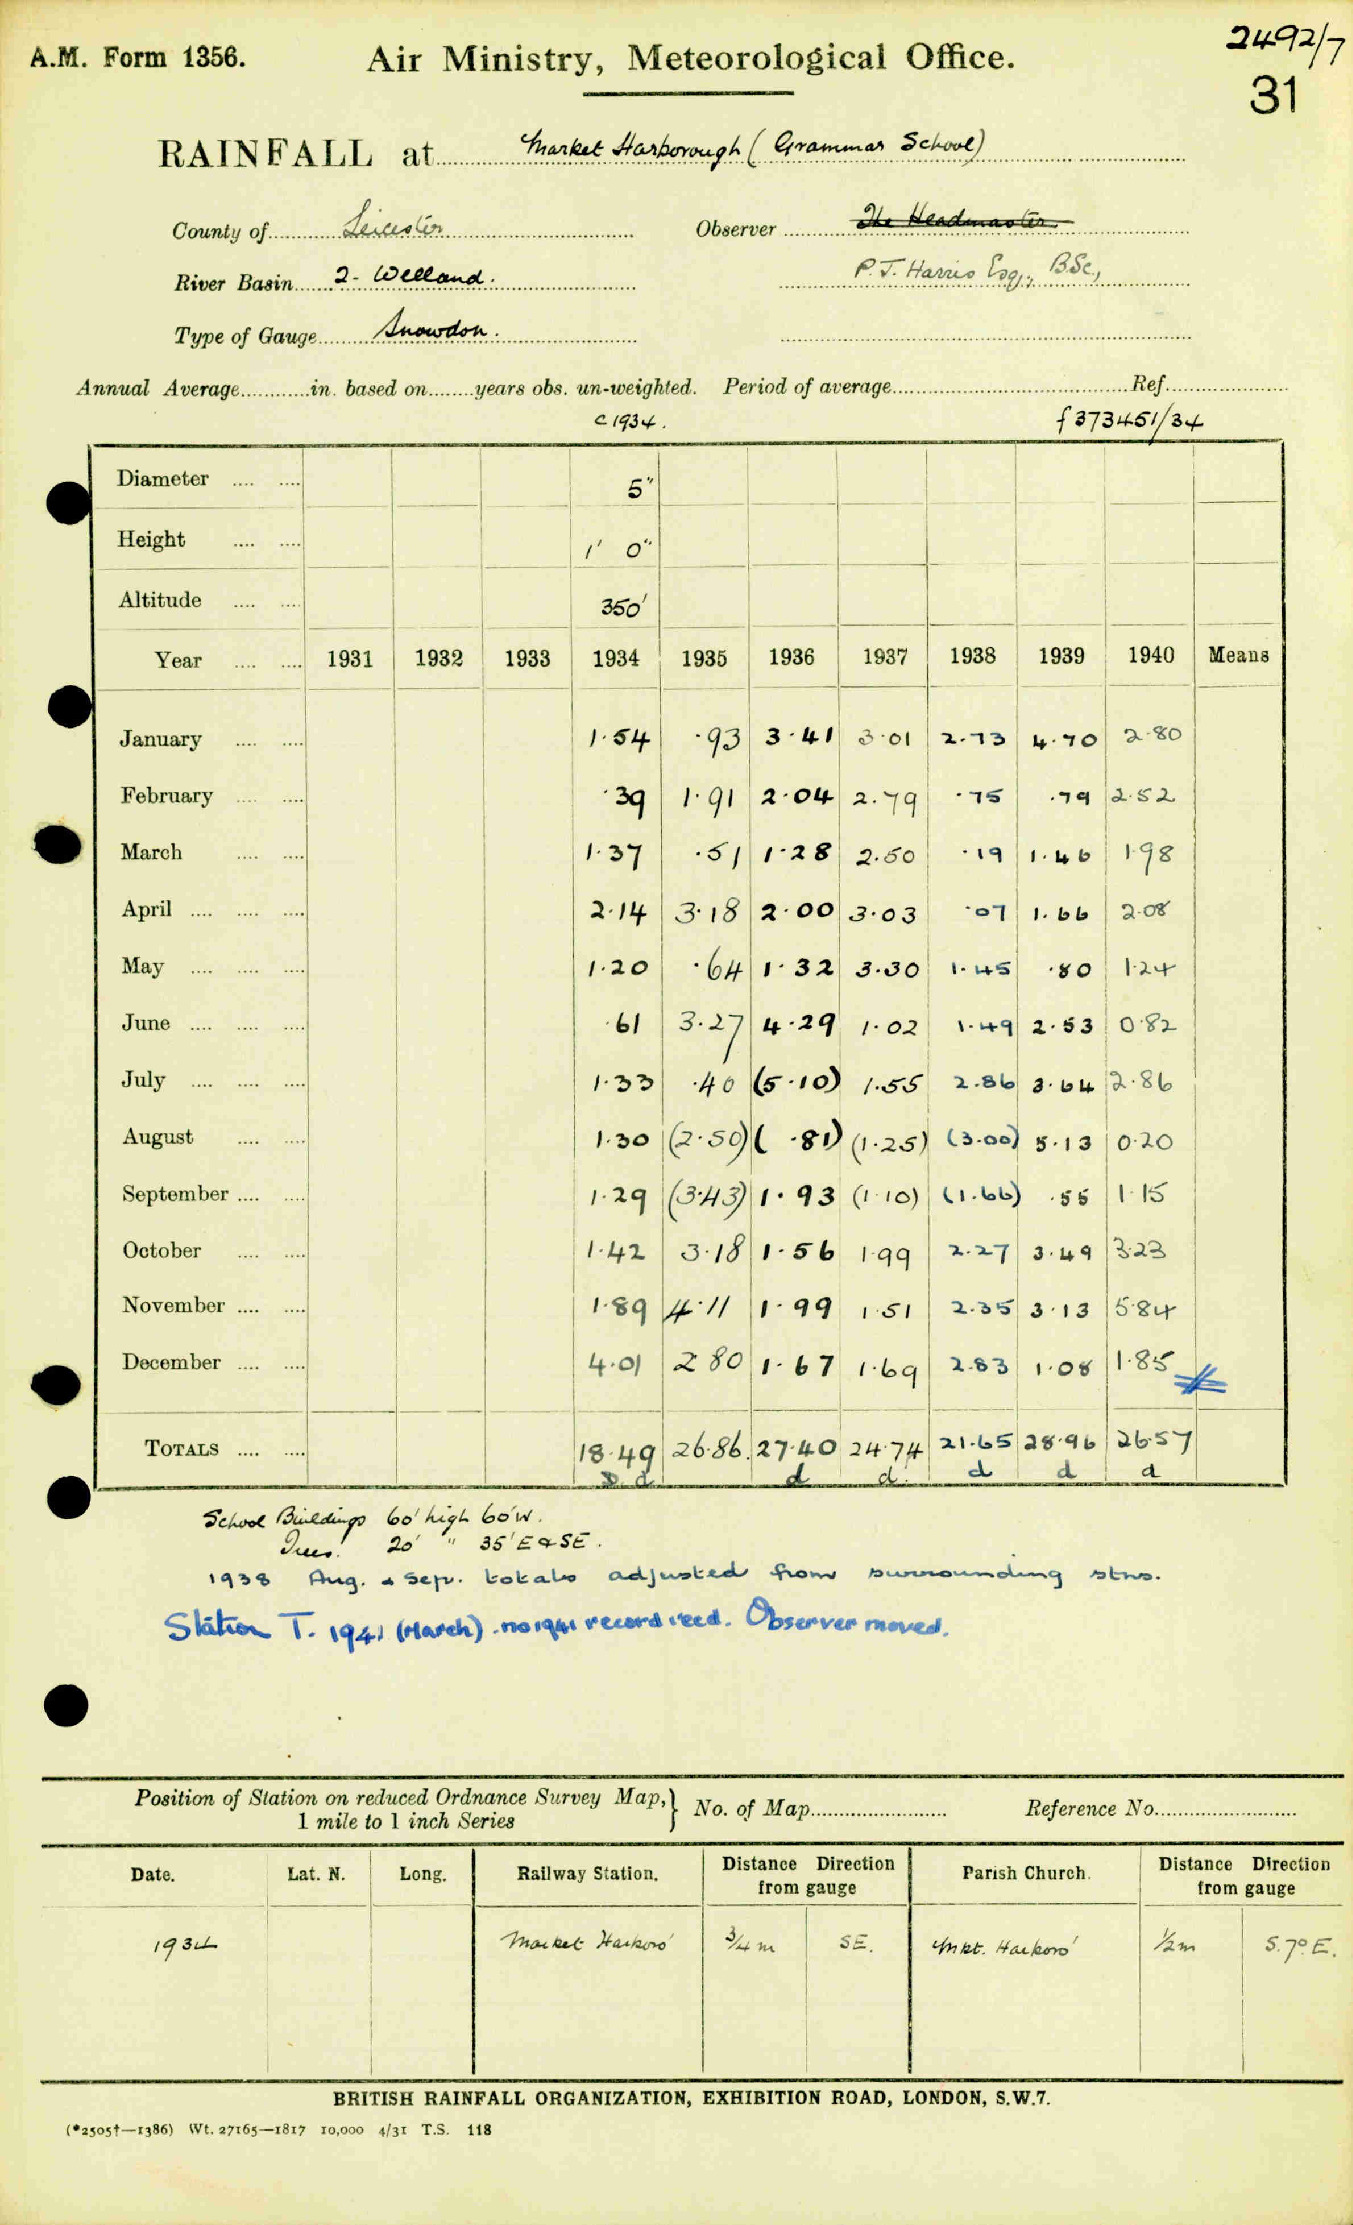 2492/7
A.M. Form 1356. Air Ministry, Meteorological Office.
31
RAINFALL at Market Harborough (Grammar School)
County of Leicester Observer The Headmaster
River Basin 2- Welland. P.J. Harris Esq., B.Sc.,
Type of Gauge Snowdon.
Annual Average in. based on years obs. un-weighted. Period of average Ref.
c 1934. f 373451/34
Diameter 5"
Height 1' 0"
Altitude 350'
Year 1931 1932 1933 1934 1935 1936 1937 1938 1939 1940 Means
January 1.54 .93 3.41 3.01 2.73 4.70 2.80
February .39 1.91 2.04 2.79 .75 .79 2.52
March 1.37 .51 1.28 2.50 .19 1.46 1.98
April 2.14 3.18 2.00 3.03 .07 1.66 2.08
May 1.20 .64 1.32 3.30 1.45 .80 1.24
June .61 3.27 4.29 1.02 1.49 2.53 0.82
July 1.33 .40 (5.10) 1.55 2.86 3.64 2.86
August 1.30 (2.50) ( .81) (1.25) (3.00) 5.13 0.20
September 1.29 (3.43) 1.93 (1.10) (1.66) .55 1.15
October 1.42 3.18 1.56 1.99 2.27 3.49 3.23
November 1.89 4.11 1.99 1.51 2.35 3.13 5.84
December 4.01 2.80 1.67 1.69 2.83 1.08 1.85
TOTALS 18.49 26.86 27.40 24.74 21.65 28.96 26.57
D. d d d. d d d
School Buildings 60' high 60' W.
Trees. 20' " 35' E & SE.
1938 Aug. & Sep. totals adjusted from surrounding stns.
Station T. 1941 (March). no 1941 record recd. Observer moved.
Position of Station on reduced Ordnance Survey Map, } No. of Map Reference No.
1 mile to 1 inch Series
Date. Lat. N. Long. Railway Station. Distance Direction from gauge Parish Church. Distance Direction from gauge
1934 Market Harboro' 3/4 m SE. Mkt. Harboro' 1/2 m S.7°E.
BRITISH RAINFALL ORGANIZATION, EXHIBITION ROAD, LONDON, S.W.7.
(*2505†—1386) Wt. 27165—1817 10,000 4/31 T.S. 118